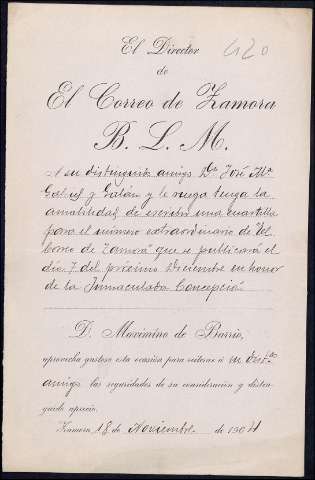 El Director
420
de
El Correo de Zamora
B. L. M.
A su distinguido amigo Dn José Mª
Gabriel y Galán y le ruega tenga la
amabilidad de escribir una cuartilla
para el número extraordinario de "El
Correo de Zamora" que se publicará el
día 7 del próximo Diciembre en honor
de la Inmaculada Concepción
D. Maximino de Barrio,
aprovecha gustoso esta ocasión para reiterar á su
amigo las seguridades de su consideración y distin-
guido aprecio.
Zamora 18 de Noviembre de 1904